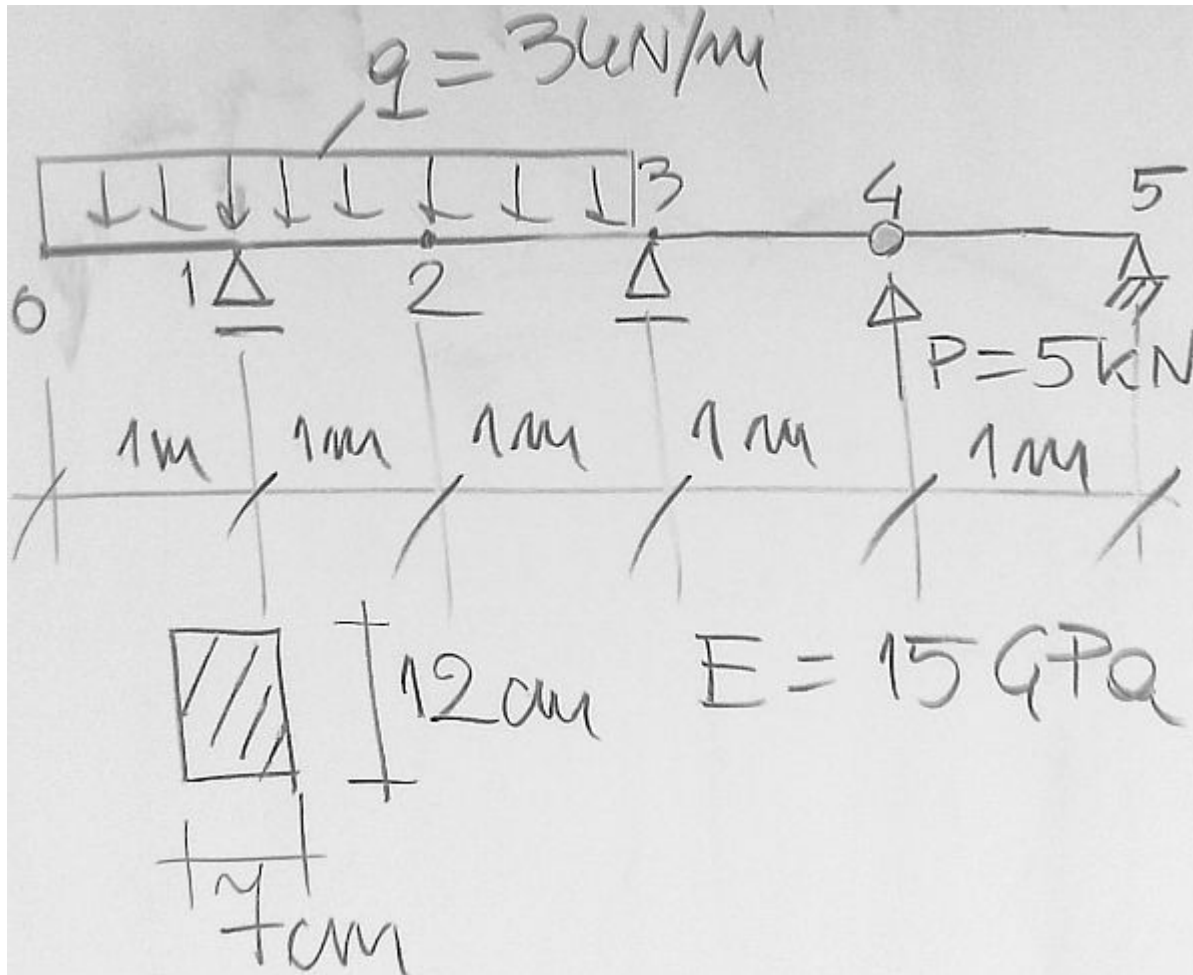 q = 3kN/m
3
4
5
0
1
2
P = 5kN
1m 1m 1m 1m 1m
12cm
E = 15 GPa
7cm